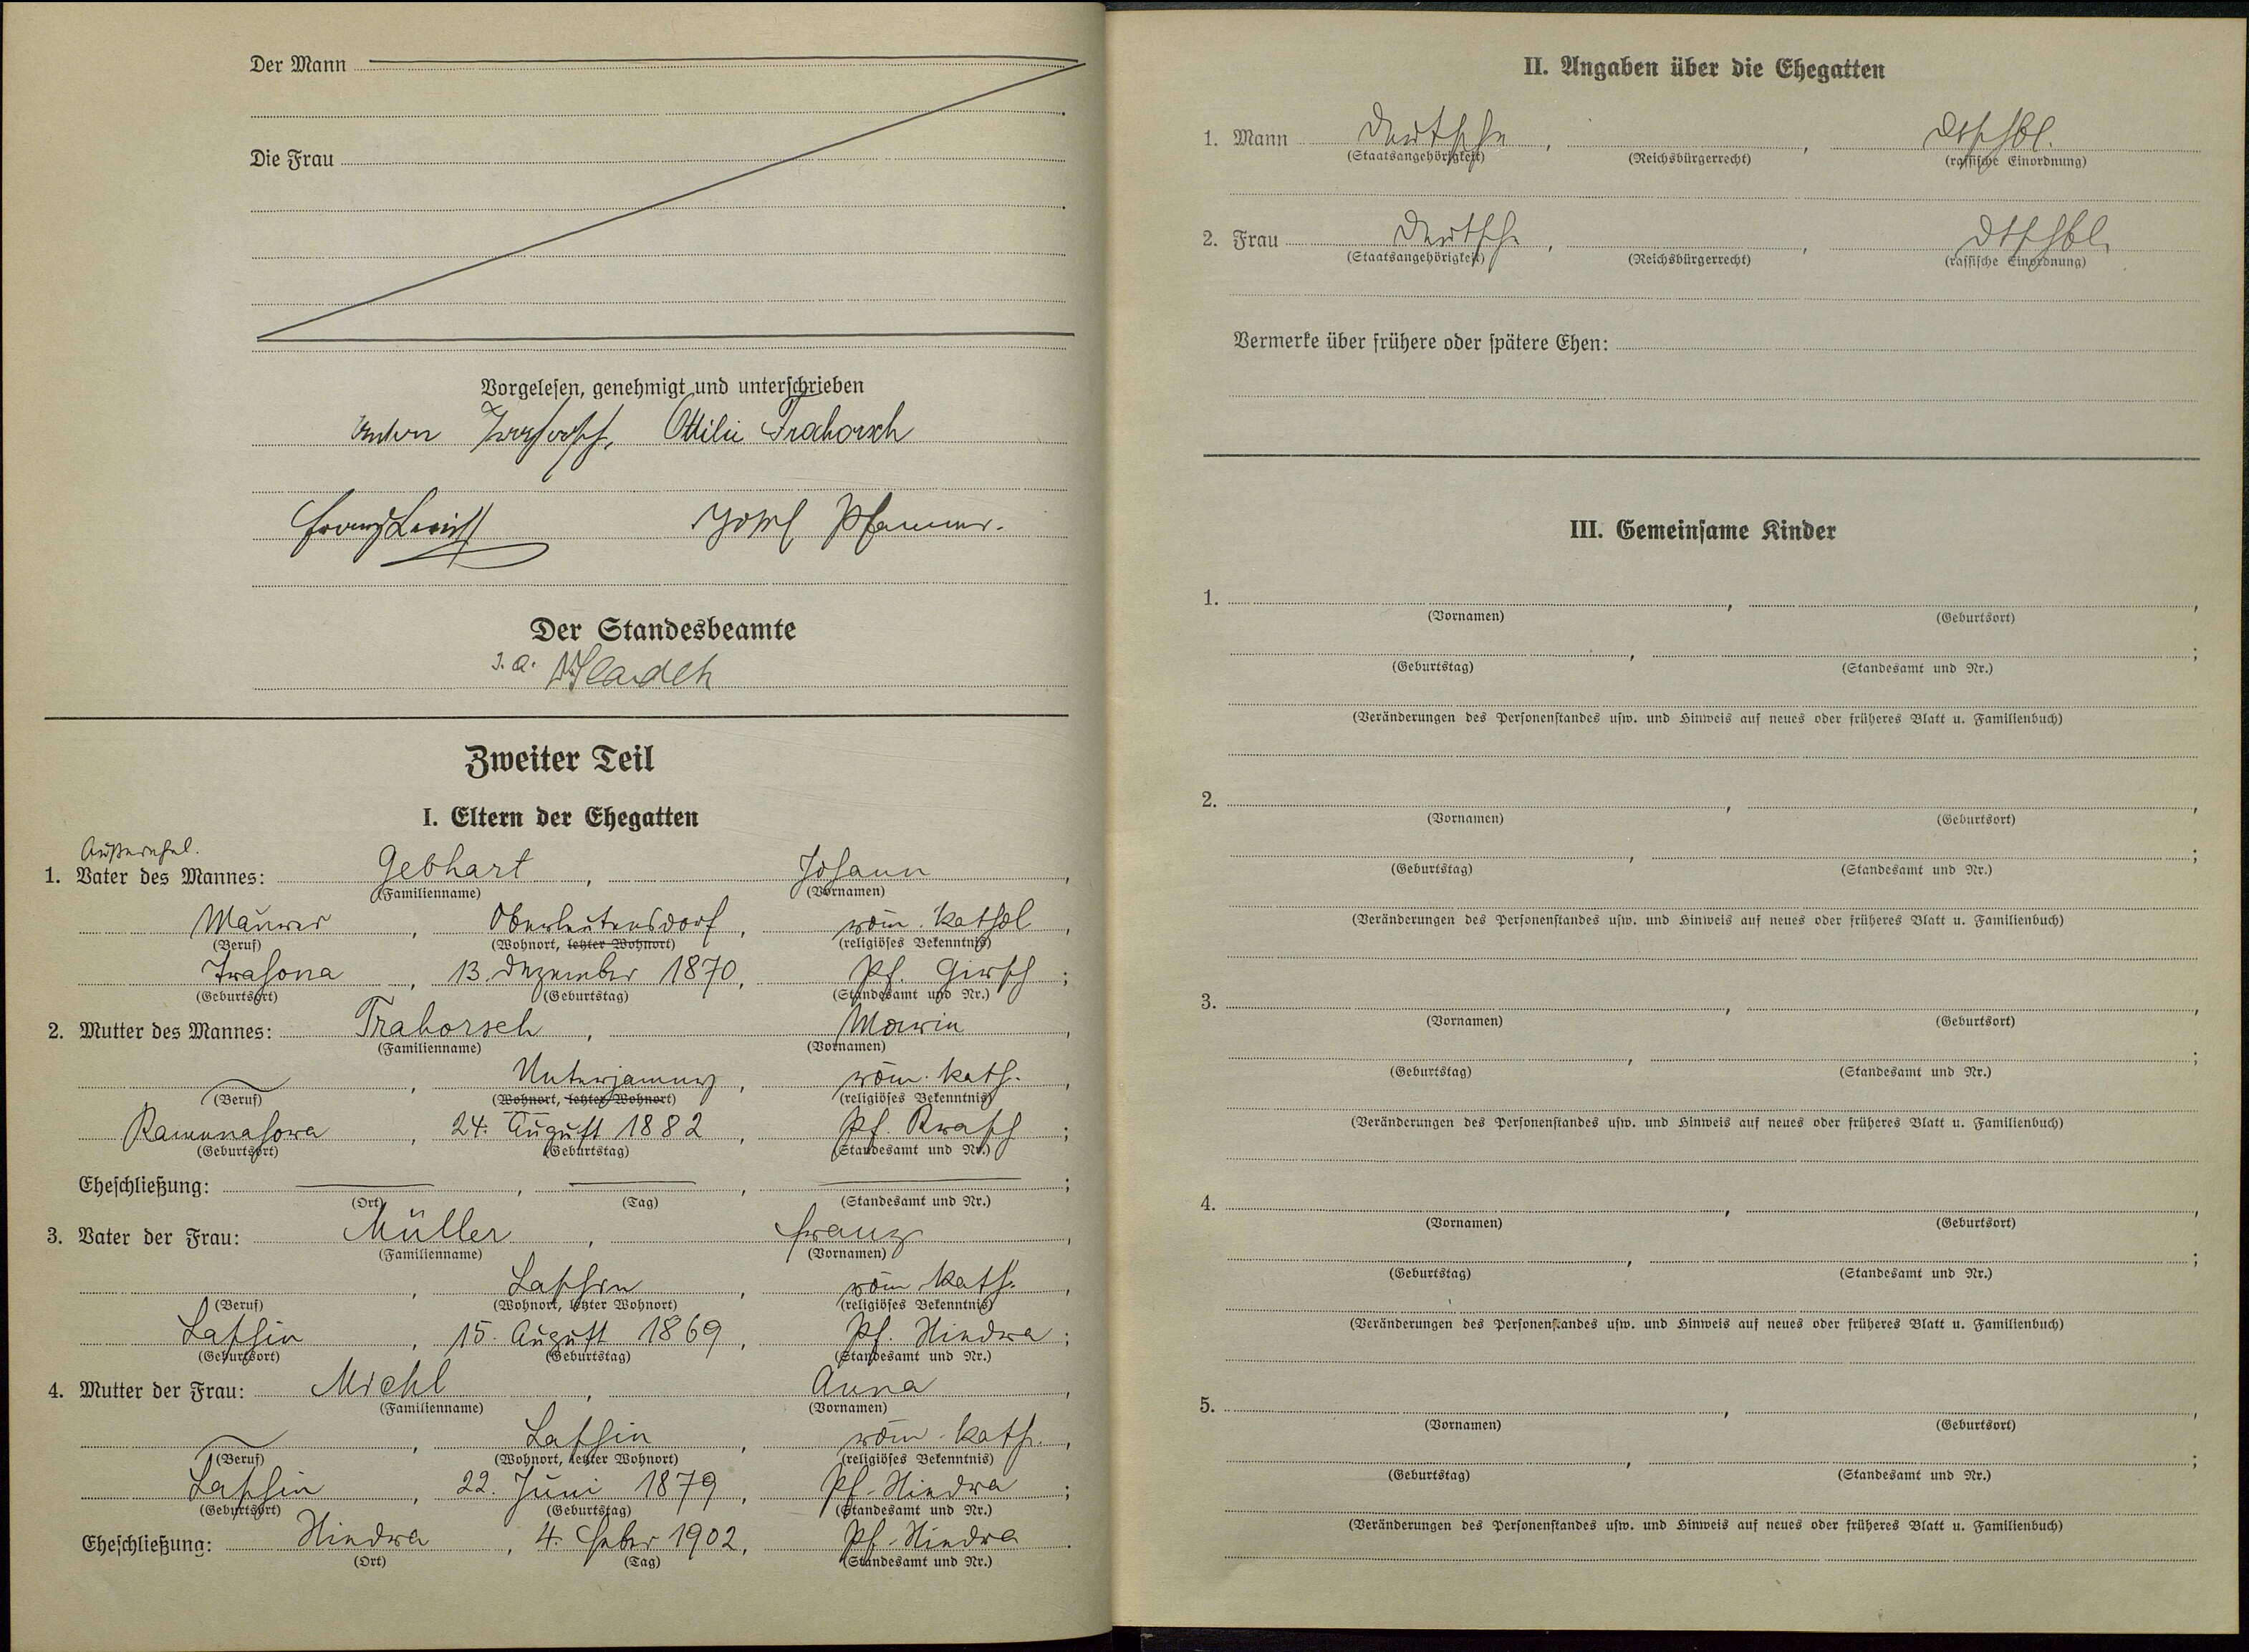 Der Mann
Die Frau
Vorgelesen, genehmigt und unterschrieben
Anton Trahorsch, Ottilie Trahorsch
Franz Josef Pfanner.
Der Standesbeamte
J. A.
Zweiter Teil
I. Eltern der Ehegatten
Außerehel.
1. Vater des Mannes: Gebhart, Johann,
(Familienname) (Vornamen)
Maurer, Oberleutensdorf, röm. kathol,
(Beruf) (Wohnort, letzter Wohnort) (religiöses Bekenntnis)
Trahona, 13. Dezember 1870, Pf. Girsch;
(Geburtsort) (Geburtstag) (Standesamt und Nr.)
2. Mutter des Mannes: Trahorsch, Marie,
(Familienname) (Vornamen)
, Unterjamny, röm. kath.,
(Beruf) (Wohnort, letzter Wohnort) (religiöses Bekenntnis)
Kamenahora, 24. August 1882, Pf. Krasch;
(Geburtsort) (Geburtstag) (Standesamt und Nr.)
Eheschließung: , , ;
(Ort) (Tag) (Standesamt und Nr.)
3. Vater der Frau: Müller, Franz,
(Familienname) (Vornamen)
, Latschin, röm. kath.,
(Beruf) (Wohnort, letzter Wohnort) (religiöses Bekenntnis)
Latschin, 15. August 1869, Pf. Hiedra;
(Geburtsort) (Geburtstag) (Standesamt und Nr.)
4. Mutter der Frau: Michl, Anna,
(Familienname) (Vornamen)
, Latschin, röm. kath.,
(Beruf) (Wohnort, letzter Wohnort) (religiöses Bekenntnis)
Latschin, 22. Juni 1879, Pf. Hiedra;
(Geburtsort) (Geburtstag) (Standesamt und Nr.)
Eheschließung: Hiedra, 4. Feber 1902, Pf. Hiedra.
(Ort) (Tag) (Standesamt und Nr.)
II. Angaben über die Ehegatten
1. Mann Deutsche, , dtschbl.
(Staatsangehörigkeit) (Reichsbürgerrecht) (rassische Einordnung)
2. Frau Deutsche, , dtschbl.
(Staatsangehörigkeit) (Reichsbürgerrecht) (rassische Einordnung)
Vermerke über frühere oder spätere Ehen:
III. Gemeinsame Kinder
1. , ,
(Vornamen) (Geburtsort)
, ;
(Geburtstag) (Standesamt und Nr.)
(Veränderungen des Personenstandes usw. und Hinweis auf neues oder früheres Blatt u. Familienbuch)
2. , ,
(Vornamen) (Geburtsort)
, ;
(Geburtstag) (Standesamt und Nr.)
(Veränderungen des Personenstandes usw. und Hinweis auf neues oder früheres Blatt u. Familienbuch)
3. , ,
(Vornamen) (Geburtsort)
, ;
(Geburtstag) (Standesamt und Nr.)
(Veränderungen des Personenstandes usw. und Hinweis auf neues oder früheres Blatt u. Familienbuch)
4. , ,
(Vornamen) (Geburtsort)
, ;
(Geburtstag) (Standesamt und Nr.)
(Veränderungen des Personenstandes usw. und Hinweis auf neues oder früheres Blatt u. Familienbuch)
5. , ,
(Vornamen) (Geburtsort)
, ;
(Geburtstag) (Standesamt und Nr.)
(Veränderungen des Personenstandes usw. und Hinweis auf neues oder früheres Blatt u. Familienbuch)